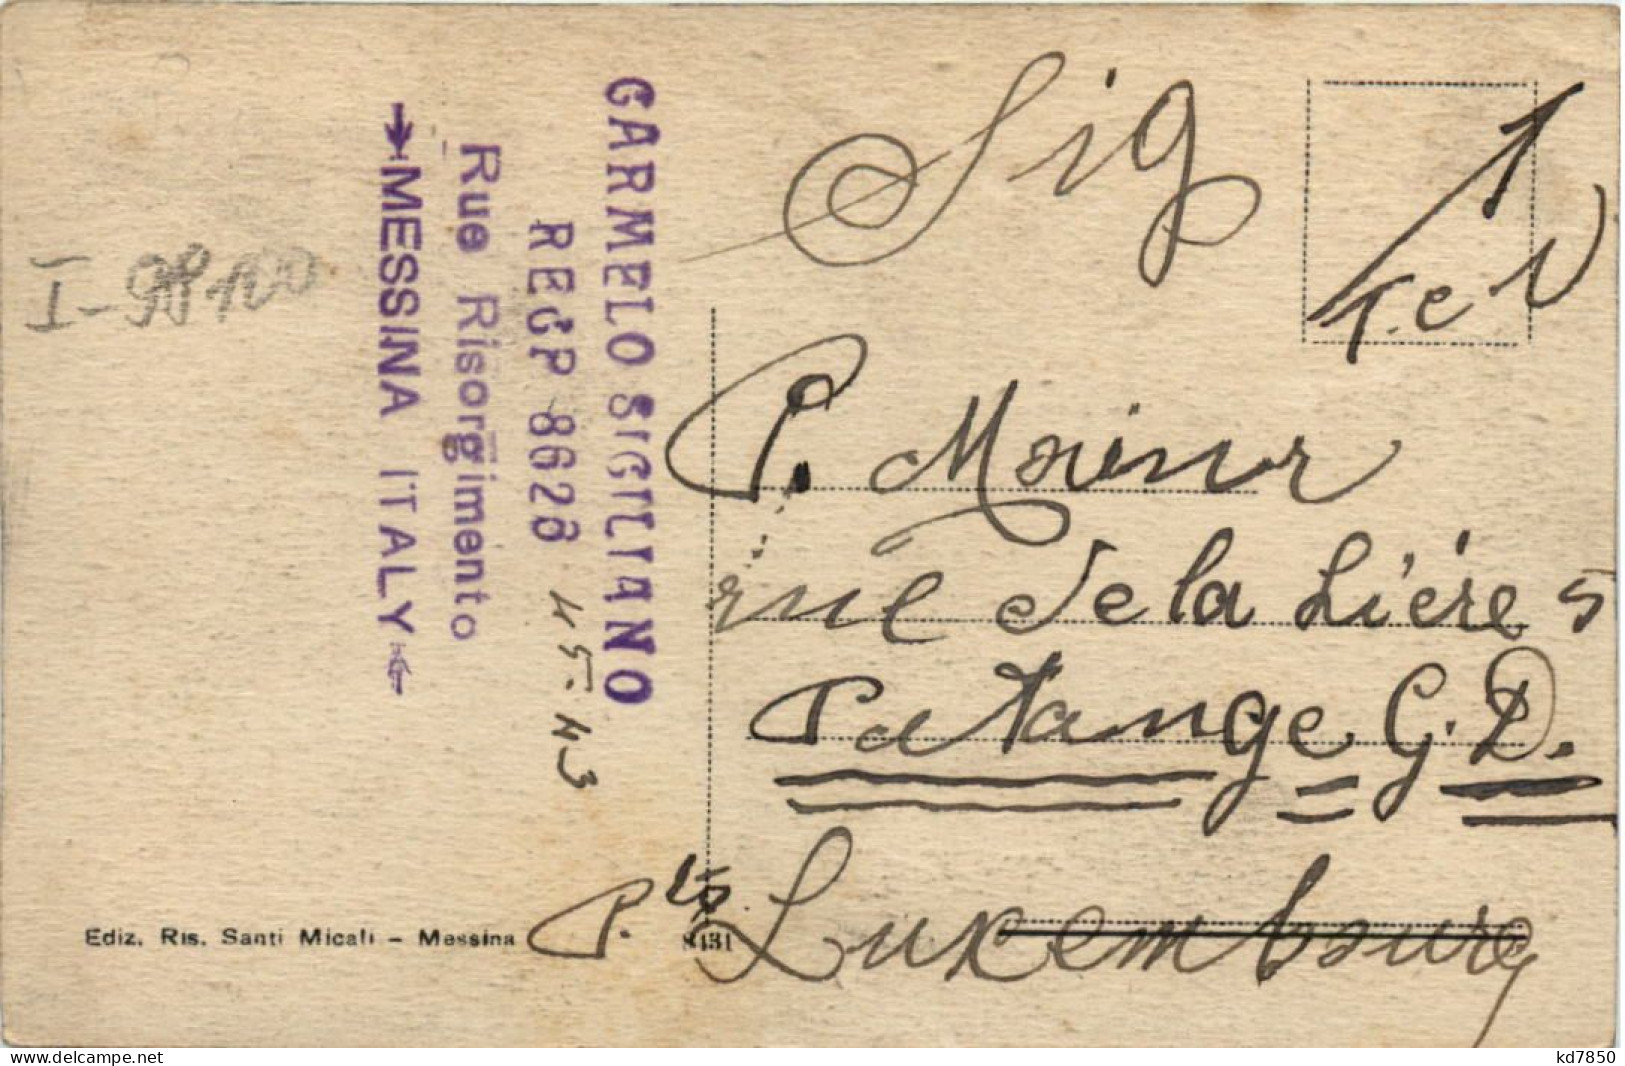 I-98100
GARMELO SIGILIANO
REGP 8628
Rue Risorgimento
MESSINA ITALY
Sig
T. e V
P. Moinur
rue de la Liére 5
Patange G. D.
P. Luxembourg
Ediz. Ris. Santi Micali - Messina
8431
www.delcampe.net
kd7850